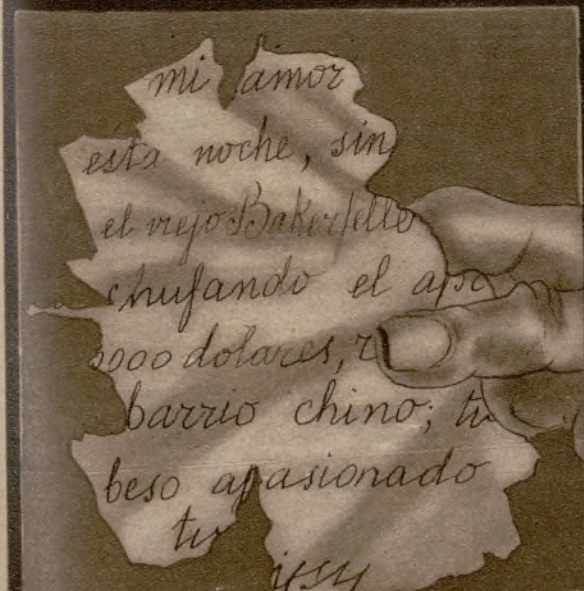 mi amor
esta noche, sin
el viejo Bakerfelle
chufando el apa
000 dolares,
barrio chino; tu
beso apasionado
tu
ysy